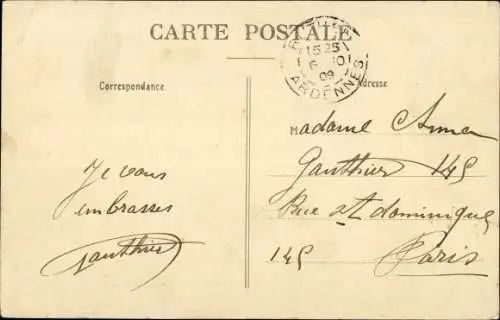 CARTE POSTALE
15 25
6 10
09
ARDENNES
Correspondance
Adresse
Madame
Gauthier 145
Rue St dominique
145 Paris
Je vous
embrasses
Gauthier